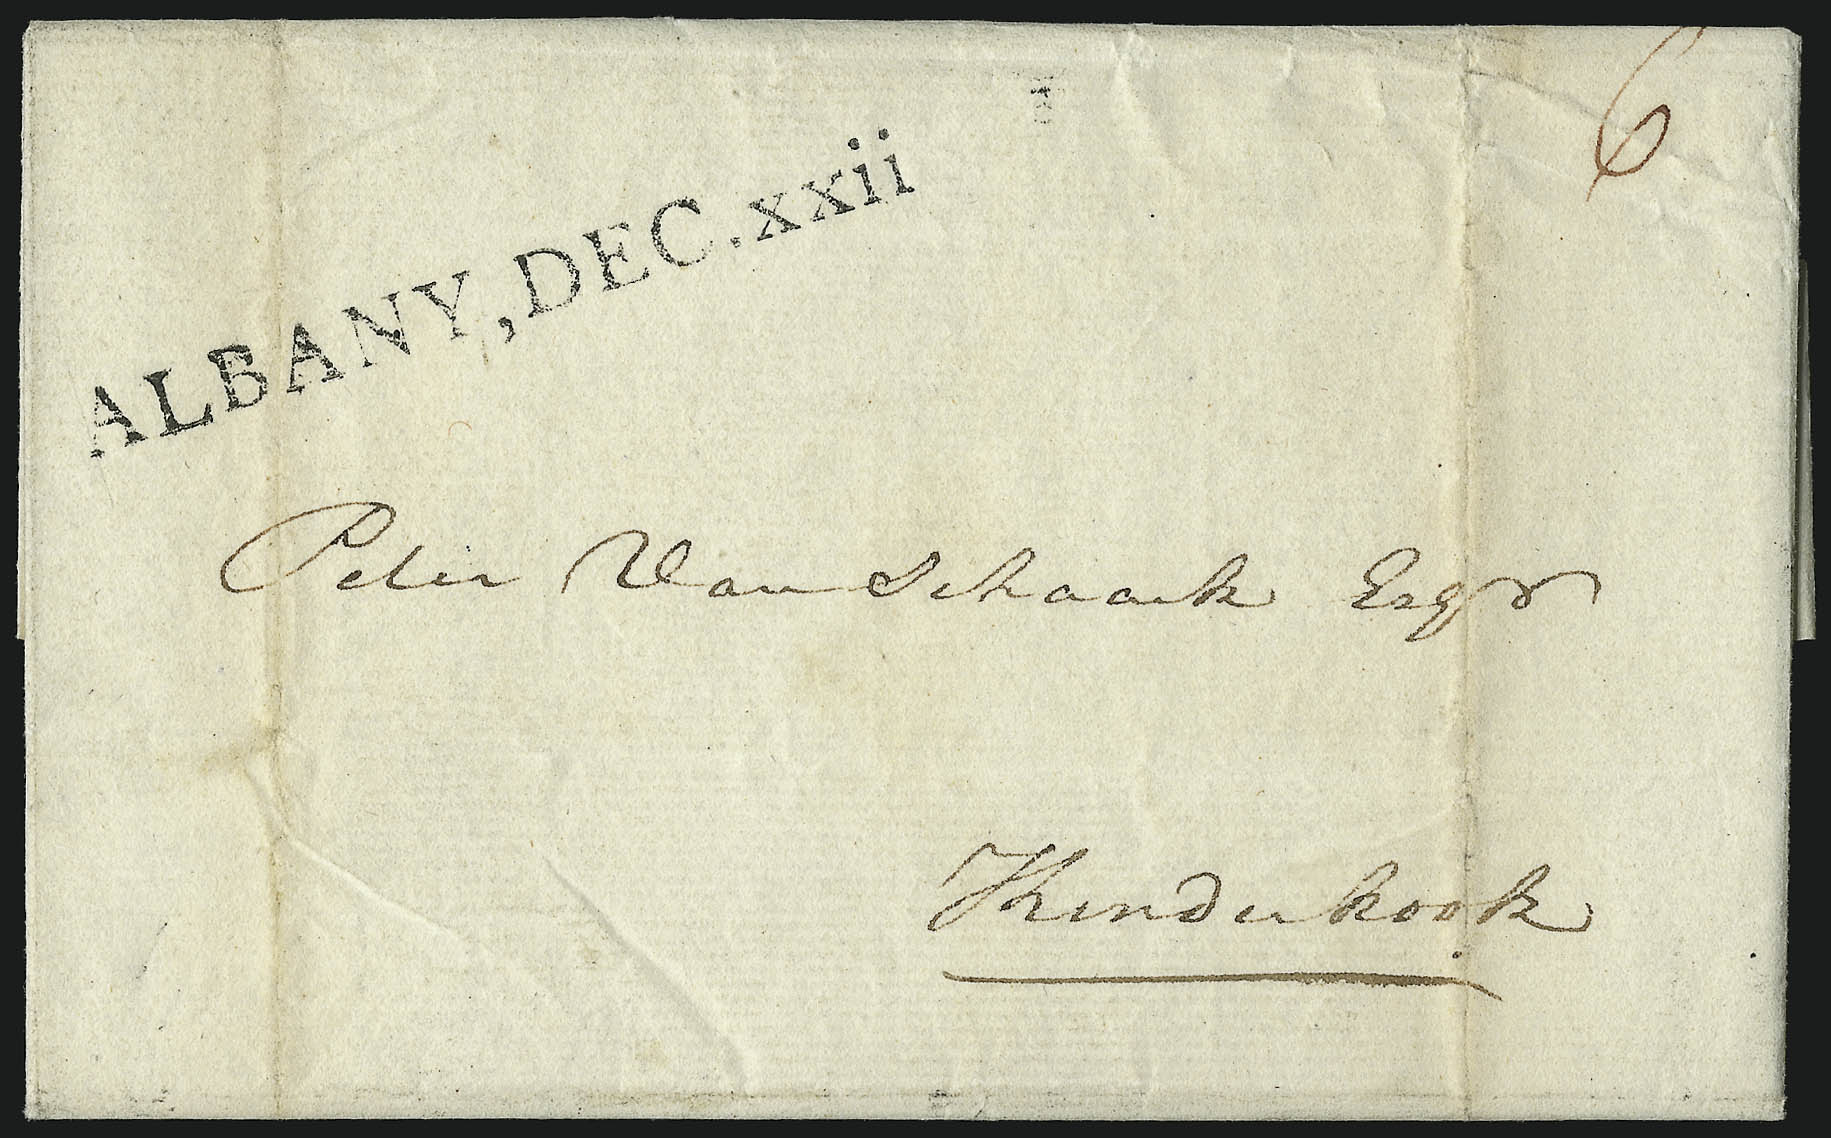 6
ALBANY, DEC. xxii
Peter Van Schaack Esqr
Kinderhook